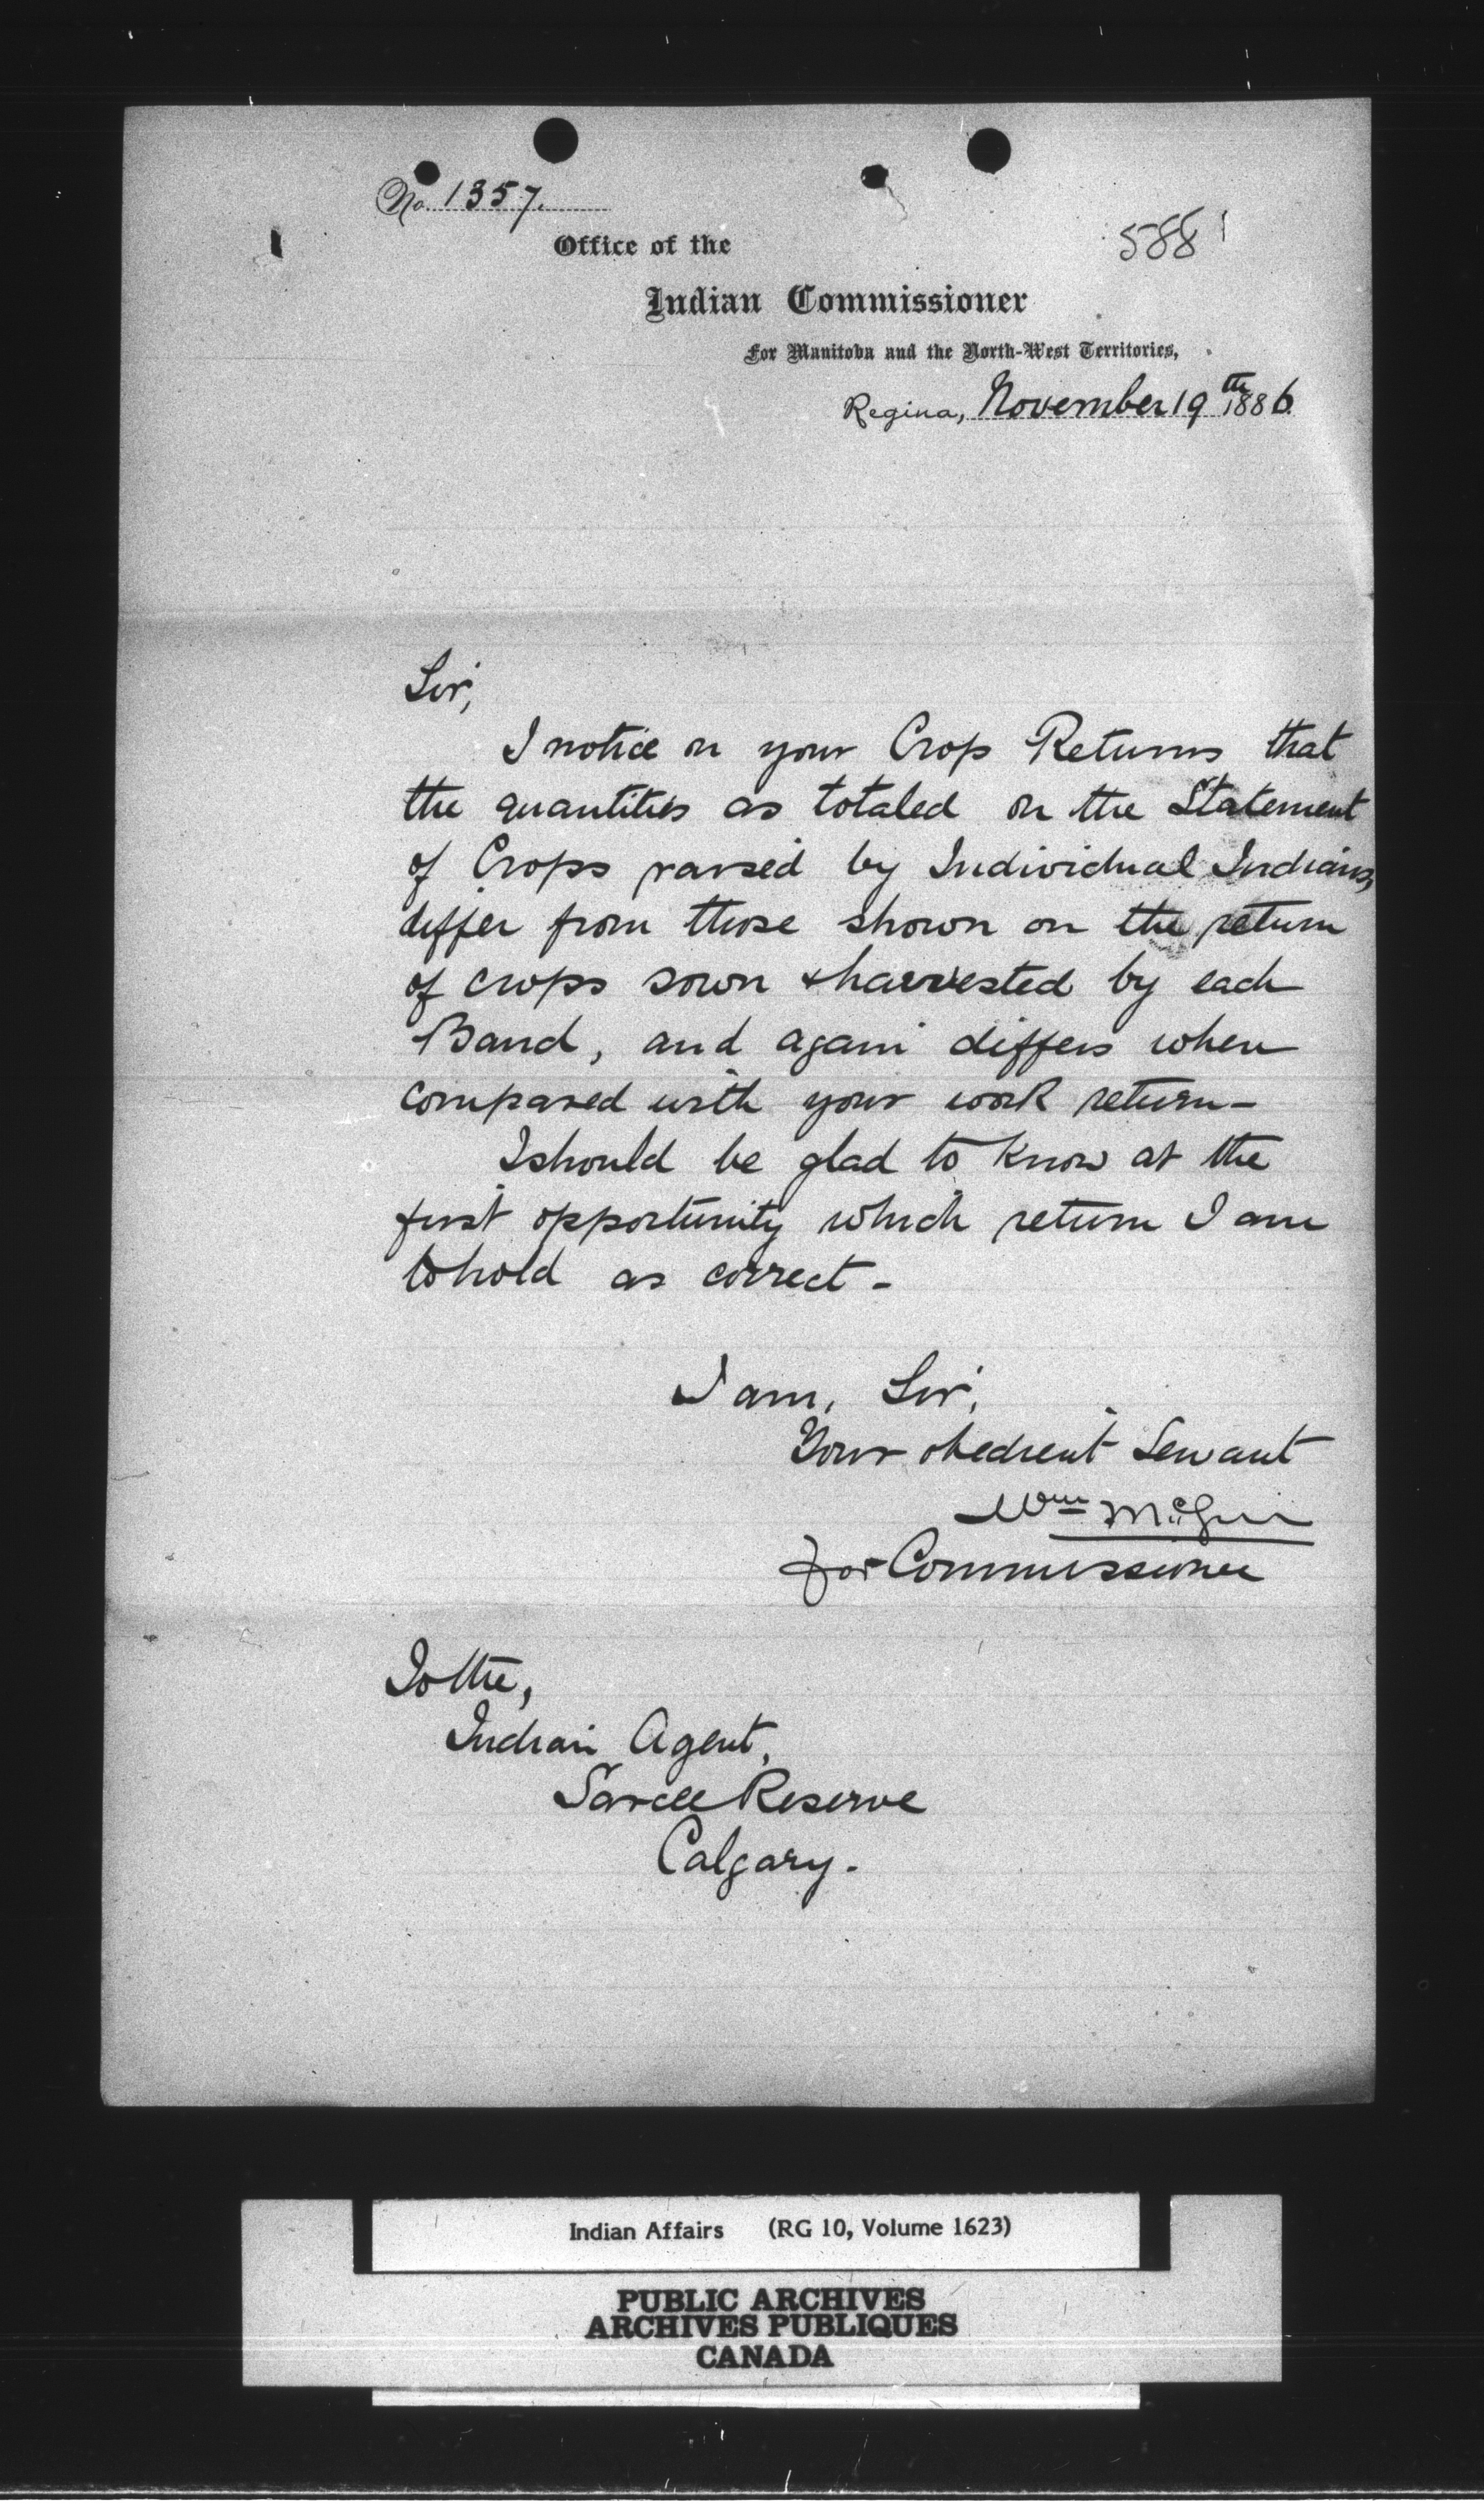 No. 1357.
588
Office of the
Indian Commissioner
For Manitoba and the North-West Territories,
Regina, November 19th 1886
Sir,
I notice on your Crop Returns that
the quantities as totaled on the Statement
of Crops raised by Individual Indians,
differ from those shown on the return
of crops sown & harvested by each
Band, and again differs when
compared with your work return-
I should be glad to know at the
first opportunity which return I am
to hold as correct-
I am, Sir,
Your obedient Servant
Wm McGirr
for Commissioner
To the,
Indian Agent,
Sarcee Reserve
Calgary.
Indian Affairs (RG 10, Volume 1623)
PUBLIC ARCHIVES
ARCHIVES PUBLIQUES
CANADA